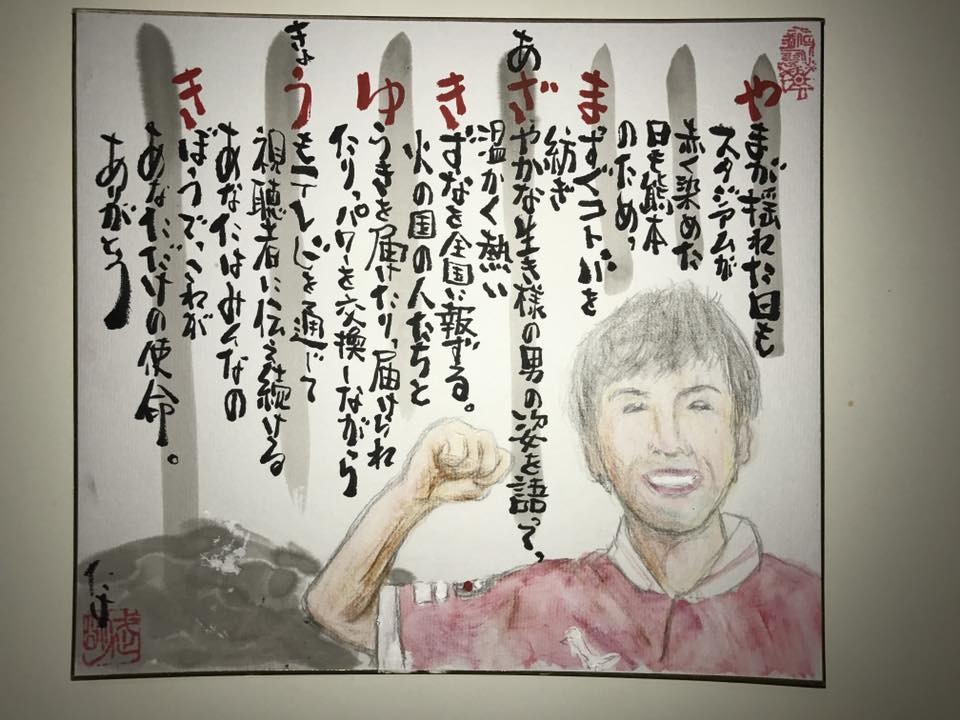 やまが揺れた日も
スタジアムが
赤く染めた
日も熊本
のため、
まっすぐコトバを
紡ぎ
あざやかな生き様の男の姿を語って、
温かく熱い
きずなを全国に報ずる。
火の国の人たちと
ゆうきを届けたり、届けられ
たり、パワーを交換しながら
きょうもテレビを通じて
視聴者に伝え続ける
あなたはみんなの
きぼうで、これが
あなただけの使命。
ありがとう